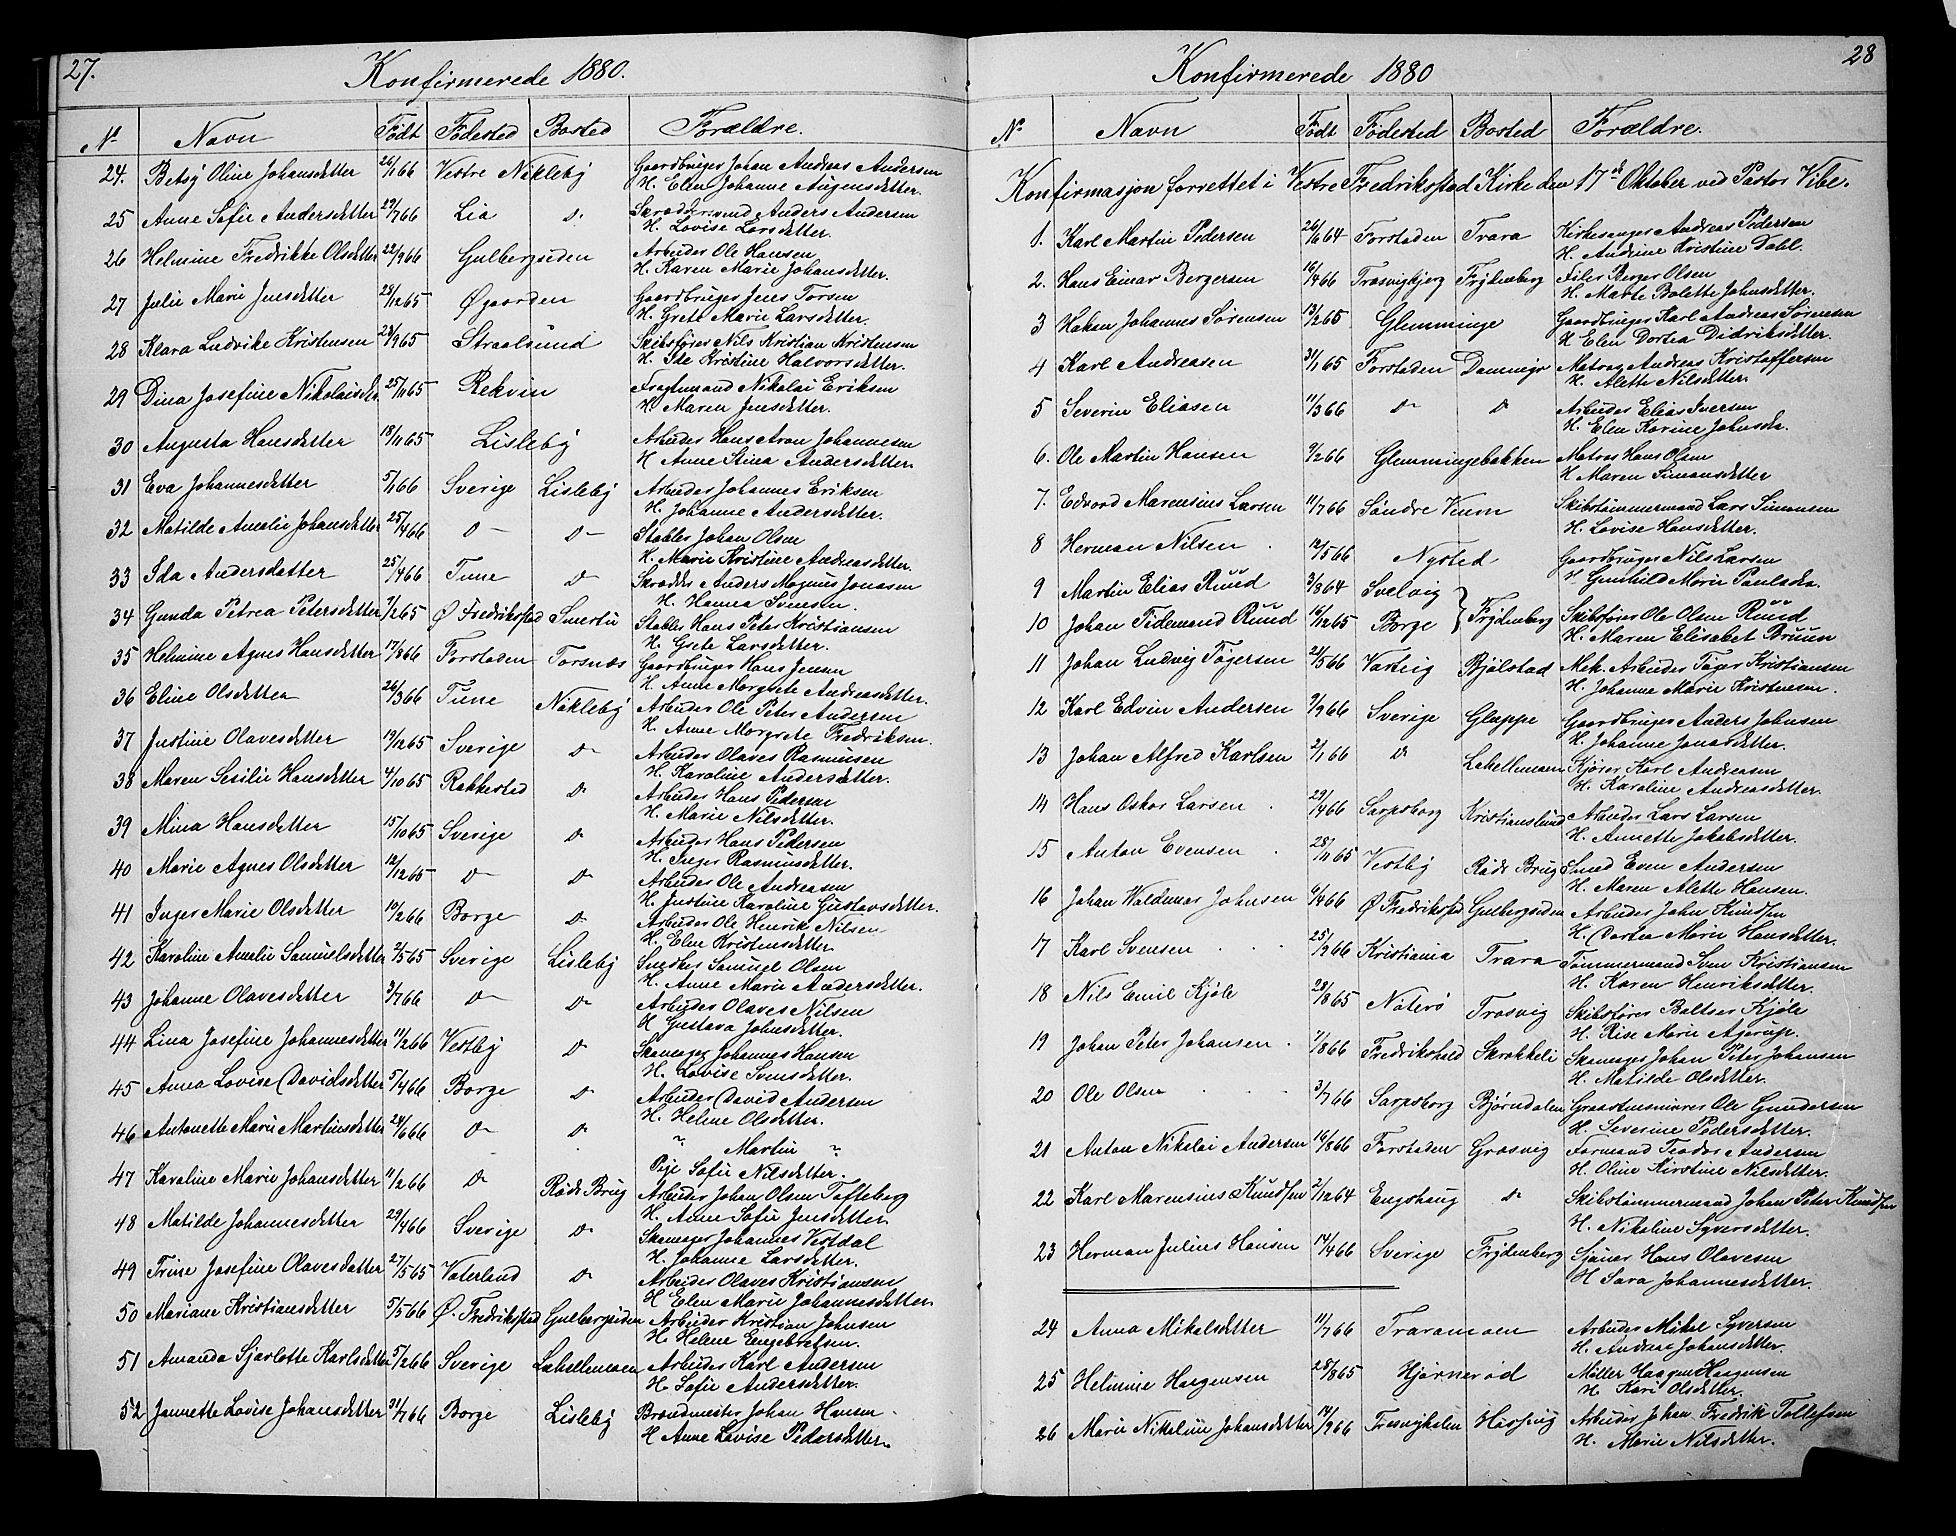 27.
Konfirmerede 1880.
No Navn Født Fødested Bosted Forældre.
24. Betsy Oline Johansdatter 26/1 66 Vestre Nöklebÿ Gaardbruger Johan Andreas Andersen
H. Elen Johanne Augensdatter.
25 Anne Sofie Andersdatter 29/7 66 Lia do Skræddersvend Anders Andersen
H. Lovise Larsdatter.
26 Helmine Fredrikke Olsdatter 22/9 66 Gulbergsiden Arbeider Ole Hansen
H. Karen Marie Johansdatter.
27 Julie Marie Jensdatter 25/12 65 Øgaarden Gaardbruger Jens Torsen
H. Grete Marie Larsdatter.
28 Klara Ludvike Kristensen 29/9 65 Straalsund Skibsfører Nils Kristian Kristensen
H. Ide Kristine Halvorsdatter.
29 Dina Josefine Nikolaisd. 25/11 65 Rekvin Fragtmand Nikolai Eriksen
H. Maren Jensdatter.
30 Augusta Hansdatter 18/11 65 Lislebÿ Arbeider Hans Aron Johannesen
H. Anne Stina Andersdatter.
31 Eva Johannesdatter 5/1 66 Sverige Lislebÿ Arbeider Johannes Eriksen
H. Johanne Andersdatter.
32 Matilde Amalie Johansdatter 25/4 66 do do Stabler Johan Olsen
H. Marie Kristine Andreasdatter.
33 Ida Andersdatter 25/4 66 Tune do Skrædder Anders Magnus Jonasen
H. Hanna Svensen.
34 Gunda Petrea Petersdatter 7/2 65 Ø Fredrikstad Smertu Stabler Hans Peter Kristiansen
H. Grete Larsdatter.
35 Helmine Agnes Hansdatter 17/8 66 Forstaden Torsnæs Gaardbruger Hans Jensen
H. Anne Margrete Andreasdatter.
36 Eline Olsdatter 26/3 66 Tune Nöklebÿ Arbeider Ole Peter Andersen
H. Anne Margrete Fredriksen.
37 Justine Olavesdatter 19/12 65 Sverige do Arbeider Olaves Rasmusen
H. Karoline Andersdatter.
38 Maren Sesilie Hansdatter 4/10 65 Rakkestad do Arbeider Hans Pedersen
H. Marie Nilsdatter.
39 Mina Hansdatter 15/10 65 Sverige do Arbeider Hans Pedersen
H. Inger Rasmusdatter.
40 Marie Agnes Olsdatter 12/12 65 do do Arbeider Ole Andreasen
H. Justine Karoline Gustavsdatter.
41 Inger Marie Olsdatter 10/2 66 Borge do Arbeider Ole Henrik Nilsen
H. Elen Kristensdatter.
42 Karoline Amelie Samuelsdatter 2/5 65 Sverige Lislebÿ Snedker Samuel Olsen
H. Anne Marie Andersdatter.
43 Johanne Olavesdatter 3/7 66 do do Arbeider Olaves Nilsen
H. Gustava Johnsdatter.
44 Lina Josefine Johannesdatter 11/2 66 Vestbÿ do Skomager Johannes Hansen
H. Lovise Svensdatter.
45 Anna Lovise Davidsdatter 5/4 66 Borge do Arbeider David Andersen
H. Helene Olsdatter.
46 Antonette Marie Martinsdatter 24/6 66 do do " Martin "
Pige Sofie Nilsdatter.
47 Karoline Marie Johansdatter 11/2 66 do Røds Brug Arbeider Johan Olsen Tofteberg
H. Anne Sofie Jensdatter.
48 Matilde Johannesdatter 29/4 66 Sverige do Skomager Johannes Vestdal
H. Johanne Larsdatter.
49 Trine Josefine Olavesdatter 27/5 65 Vaterland do Arbeider Olaves Kristiansen
H. Elen Marie Johannesdatter.
50 Mariane Kristiansdatter 5/5 66 Ø. Fredrikstad Gulbergsiden Arbeider Kristian Johnsen
H. Helene Engebretsen.
51 Amanda Sjarlotte Karlsdatter 5/2 66 Sverige Labellemoen Arbeider Karl Andersen
H. Sofie Andersdatter.
52 Jannette Lovise Johansdatter 31/7 66 Borge Lislebÿ Brandmester Johan Hansen
H. Anne Lovise Pedersdatter.
28
Konfirmerede 1880
No Navn Født Fødested Bosted Forældre.
Konfirmasjon forrettet i Vestre Fredrikstad Kirke den 17de Oktober ved Pastor Vibe.
1. Karl Martin Pedersen 26/6 64 Forstaden Trara Kirkesanger Andreas Pedersen
H. Andrine Kristine Dahl.
2. Hans Einar Bergersen 16/4 66 Trosvigbjerg Frÿdenberg Filer Berger Olsen
H. Marte Bolette Johnsdatter.
3 Haken Johannes Sörensen 13/2 65 Glemminge Gaardbruger Karl Andreas Sörensen
H. Elen Dortea Didriksdatter.
4 Karl Andreasen 31/1 65 Forstaden Damnigs Matros Andreas Kristoffersen
H. Alette Nilsdatter.
5 Severin Eliasen 11/3 66 do do Arbeider Elias Iversen
H. Elen Karine Johnsda.
6. Ole Martin Hansen 9/2 66 Glemmingebakken Matros Hans Olsen
H. Maren Simonsdatter
7. Edvard Marensius Larsen 11/7 66 Söndre Veum Skibstömmermand Lars Simonsen
H. Lovise Hansdatter.
8 Herman Nilsen 12/5 66 Nÿsted Gaardbruger Nils Larsen
H. Gunhild Marie Paulsda.
9 Martin Elias Ruud 3/8 64 Svelvig
10 Johan Tidemand Ruud 16/12 65 Borge } Frÿdenberg Skibsfører Ole Olsen Ruud
H. Maren Elisabet Bruun
11 Johan Ludvig Tögersen 21/5 66 Varteig Bjölstad Mek. Arbeider Töger Kristiansen
H. Johanne Marie Kristensen.
12 Karl Edvin Andersen 9/9 66 Sverige Gluppe Gaardbruger Anders Johnsen
H. Johanne Jonasdatter.
13 Johan Alfred Karlsen 2/1 66 do Labellemoen Kjører Karl Andreasen
H. Karoline Andreasdatter.
14 Hans Oskar Larsen 29/4 66 Sarpsborg Kristianslund Arbeider Lars Larsen
H. Annette Jakobsdatter.
15 Anton Evensen 28/11 65 Vestbÿ Røds Brug Smed Even Andersen
H. Maren Alette Hansen.
16 Johan Waldemar Johnsen 6/4 66 Ø Fredrikstad Gulbergsiden Arbeider John Knudsen
H. Dortea Marie Hansdatter.
17 Karl Svensen 25/2 66 Kristiania Trara Tömmermand Sven Kristiansen
H. Karen Henriksdatter.
18 Nils Emil Kjöle 28/8 65 Nöterö Trosvig Skibsfører Baltser Kjöle
H. Rise Marie Agerup.
19 Johan Peter Johansen 7/8 66 Fredrikshald Skrokkeli Skomager Johan Peter Johansen
H. Matilde Olsdatter.
20 Ole Olsen 3/7 66 Sarpsborg Björndalen Graastensminerer Ole Gundersen
H. Severine Pedersdatter.
21 Anton Nikolai Andersen 16/8 66 Forstaden Grosvig Formand Teodor Andersen
H. Oline Kirstine Nilsdatter.
22 Karl Marensius Knudsen 2/12 64 Engshaug do Skibstömmermand Johan Peter Knudsen
H. Nikoline Syversdatter.
23 Herman Julius Hansen 14/4 66 Sverige Frÿdenberg Sjömer Hans Olavesen
H Sara Johannesdatter.
24 Anna Mikelsdatter 11/7 66 Traramoen Arbeider Mikel Syversen
H. Andrea Johansdatter.
25 Helmine Haagensen 28/8 65 Hjörneröd Møller Haagen Haagensen
H. Kari Olsdatter.
26 Marie Nikoline Johansdatter 14/9 66 Trosvighalen Hassing Arbeider Johan Fredrik Tollefsen
H. Marie Nilsdatter.